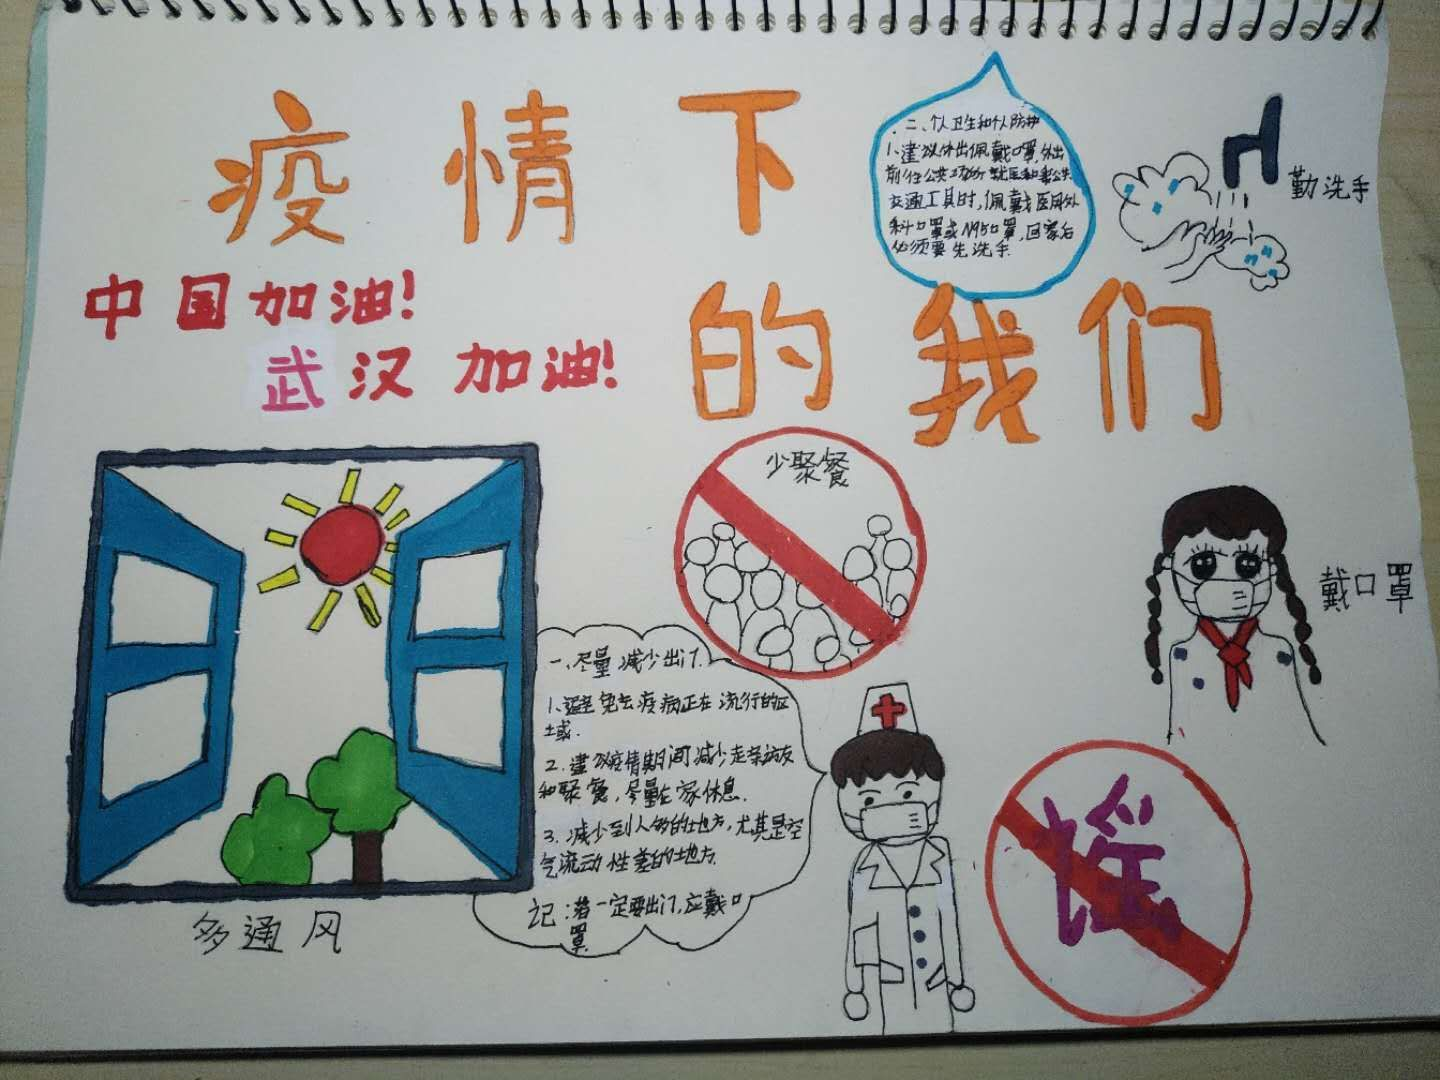 疫情下
的我们
中国加油!
武汉加油!
二、个人卫生和个人防护
1、建议外出佩戴口罩,外出
前往公共场所就医和乘公共
交通工具时,佩戴医用外
科口罩或N95口罩,回家后
必须要先洗手.
勤洗手
少聚餐
戴口罩
一、尽量减少出门.
1、避免去疫病正在流行的区
域.
2.建议疫情期间减少走亲访友
和聚餐,尽量在家休息.
3.减少到人多的地方,尤其是空
气流动性差的地方.
记:若一定要出门,应戴口
罩.
多通风
谣